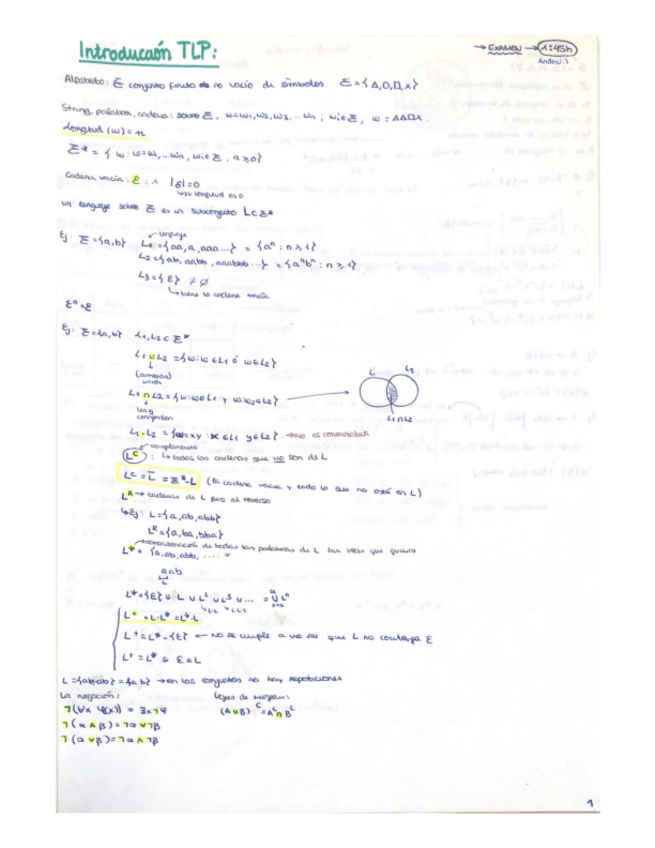 Introducción TLP:
→ EXAMEN → 1:45h
Alfabeto: Σ conjunto finito no vacío de símbolos Σ={Δ,O,□,x}
String, palabras, cadena: sobre Σ, w=w1,w2,w3,...wn ; wi∈Σ, w = ΔΔ□x.
Longitud (w) = n
Σ* = { w: w=w1,...wn, wi∈Σ, n≥0}
Cadena vacía: ε ; |ε|=0
su longitud es 0
un lenguaje sobre Σ es un subconjunto L⊂Σ*
lenguaje
Ej: Σ={a,b} L1={aa,a,aaa...} = {aⁿ: n≥1}
L2={ab, aabb, aaabbb...} = {aⁿbⁿ: n≥1}
L3={ε} ≠ ∅
↳ tiene la cadena vacía
Ej: Σ={a,b} L1,L2⊂Σ*
L1∪L2 = {w: w∈L1 ó w∈L2}
(ambas)
unión
L1 L2
L1∩L2 = {w: w∈L1 y w∈L2} →
comparten
L1∩L2
L1·L2 = {w=xy: x∈L1 y∈L2} → No es conmutativa
complemento
Lᶜ: ↳ todas las cadenas que no son de L
Lᶜ = L̅ = Σ*-L (la cadena vacía y todo lo que no está en L)
Lᴿ → cadenas de L pero al reverso
↳ Ej: L={a,ab,abb}
Lᴿ={a,ba,bba}
concatenación de todas las palabras de L las veces que quiera
L* = {a,ab,abb, ....
aab
L
L*={ε} ∪ L ∪ L² ∪ L³ ∪ ... = ∪Lⁿ
L⁺ = L·L* = L*·L
L⁺ = L* - {ε} ← no se cumple a no ser que L no contenga ε
L⁺ = L* ≡ ε∈L
→ en los conjuntos no hay repeticiones
La negación: Leyes de morgan:
(A∪B)ᶜ = Aᶜ∩Bᶜ
¬(α∧β) = ¬α∨¬β
¬(α∨β) = ¬α∧¬β
1